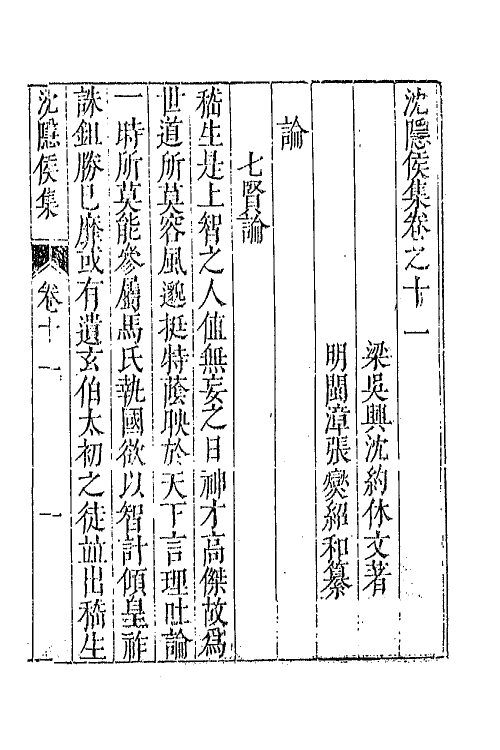 沈隱侯集卷之十一
梁吳興沈約休文著
明閩漳張燮紹和纂
論
七賢論
嵇生是上智之人值無妄之日神才高傑故爲
世道所莫容風邈挺特蔭映於天下言理吐論
一時所莫能參屬馬氏執國欲以智計傾皇祚
誅鉏勝己靡或有遺玄伯太初之徒並出嵇生
沈隱侯集
卷十一
一